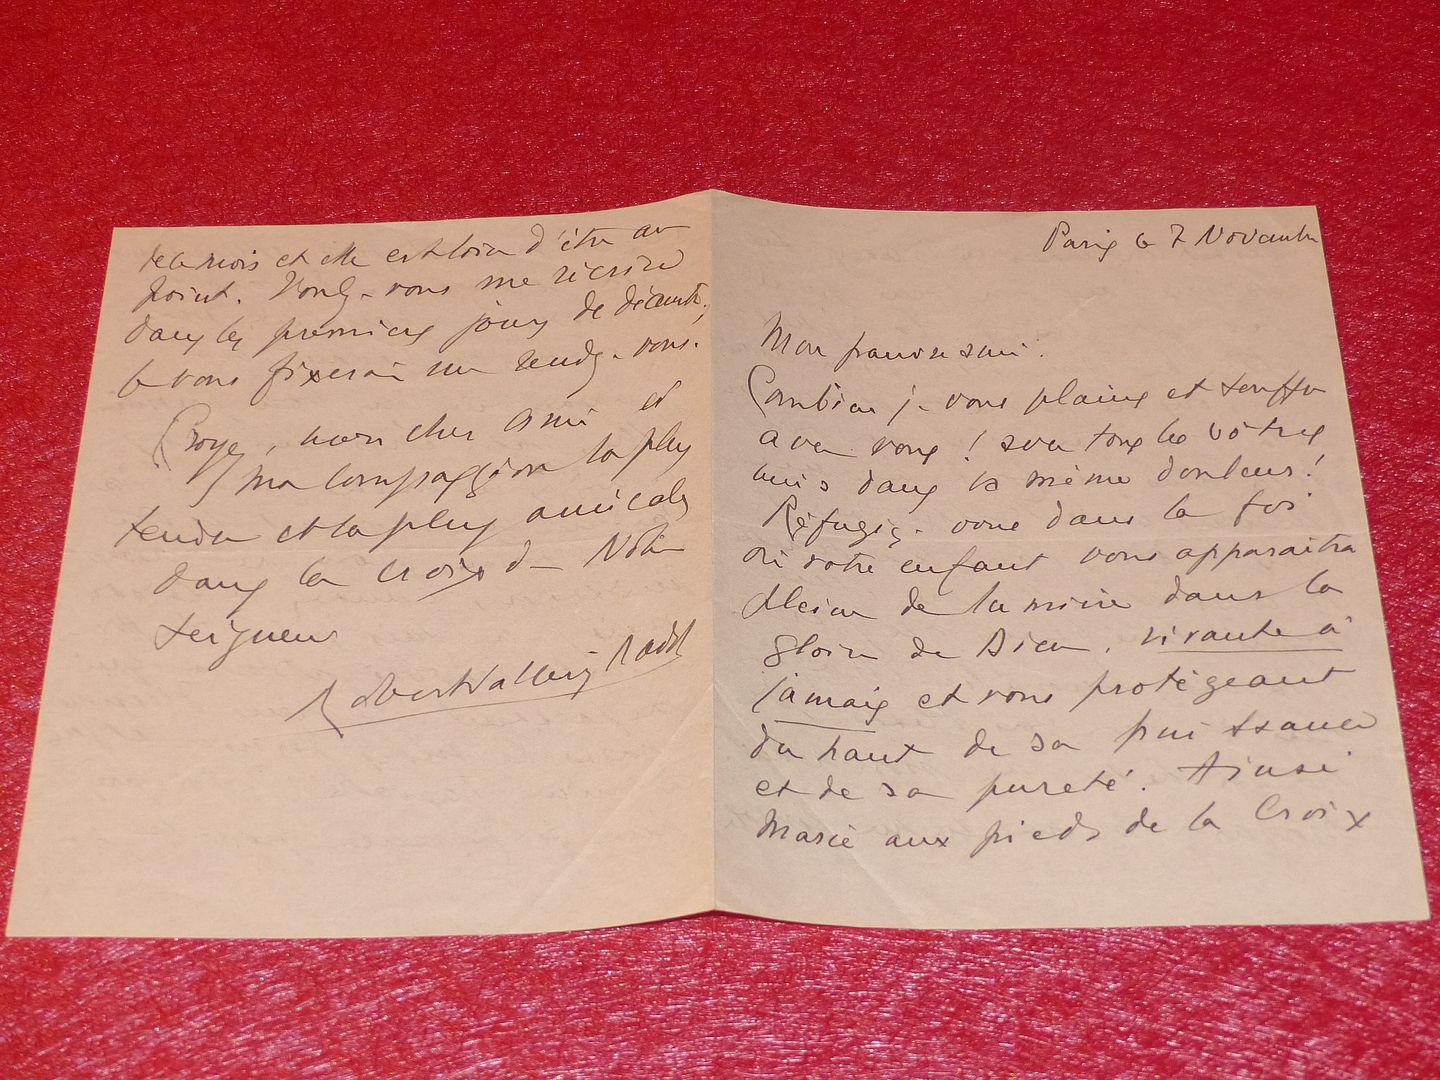 Paris le 7 Novembre
Mon pauvre ami.
Combien je vous plains et souffre
avec vous ! avec tous les vôtres
unis dans la même douleur !
Réfugiez-vous dans la foi
où votre enfant vous apparaitra
pleine de lumière dans la
gloire de Dieu, vivante à
jamais et vous protégeant
du haut de sa puissance
et de sa pureté. Ainsi
Marie aux pieds de la Croix
de ce mois et elle est loin d'être au
point. Voulez-vous me récrire
dans les premiers jours de décembre,
je vous fixerai un rendez-vous.
Croyez, mon cher ami et
ma compassion la plus
tendre et la plus amicale
dans la croix de Notre
Seigneur
Robert Vallery Radot